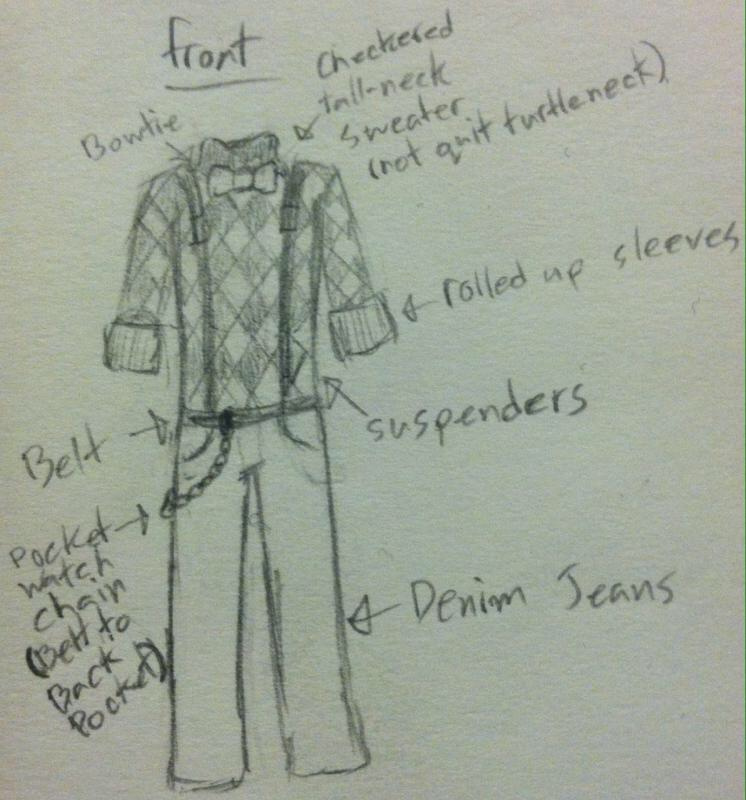 front
Checkered
tall-neck
sweater
(not quit turtleneck)
Bowtie
rolled up sleeves
suspenders
Belt
Pocket
watch
chain
(Belt to
Back
Pocket)
Denim Jeans